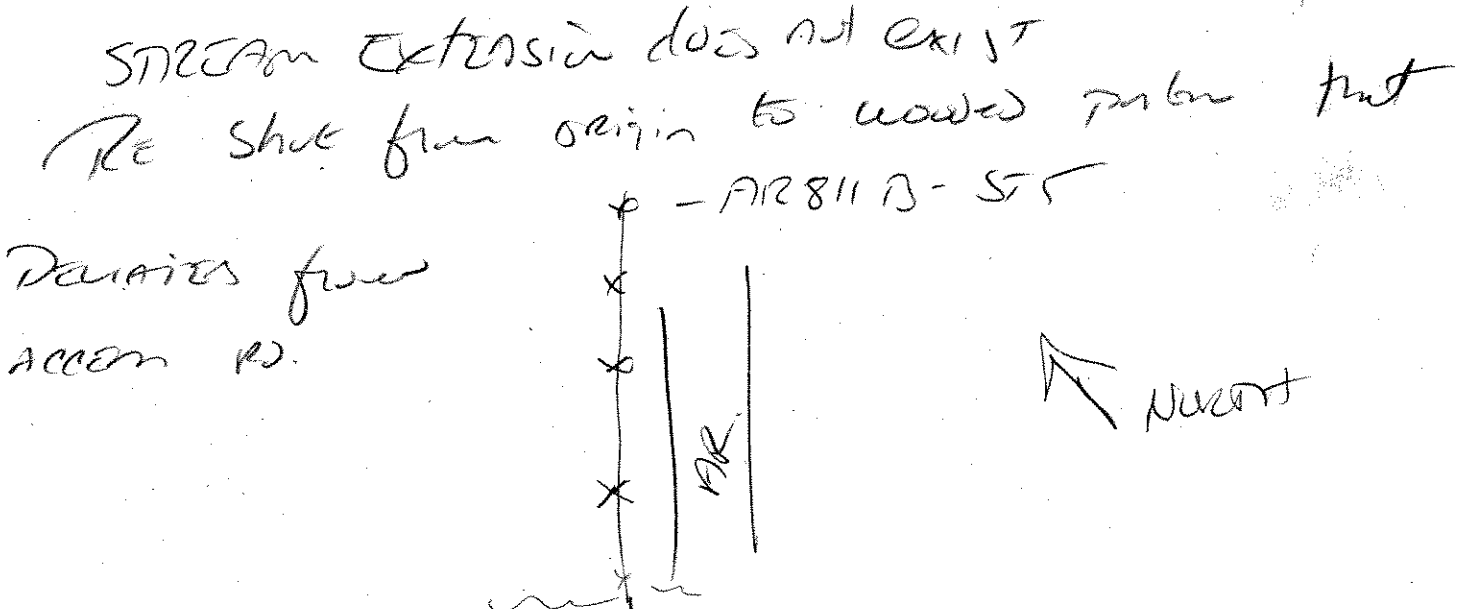 STREAM Extension does not exist
Re Shot from origin to wooded portion that
- AR811B-ST5
Deviates from
Access Rd.
AR
North